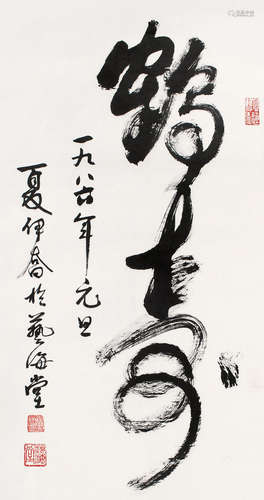 鹤寿
一九八六年元旦
夏伊乔於艺海堂